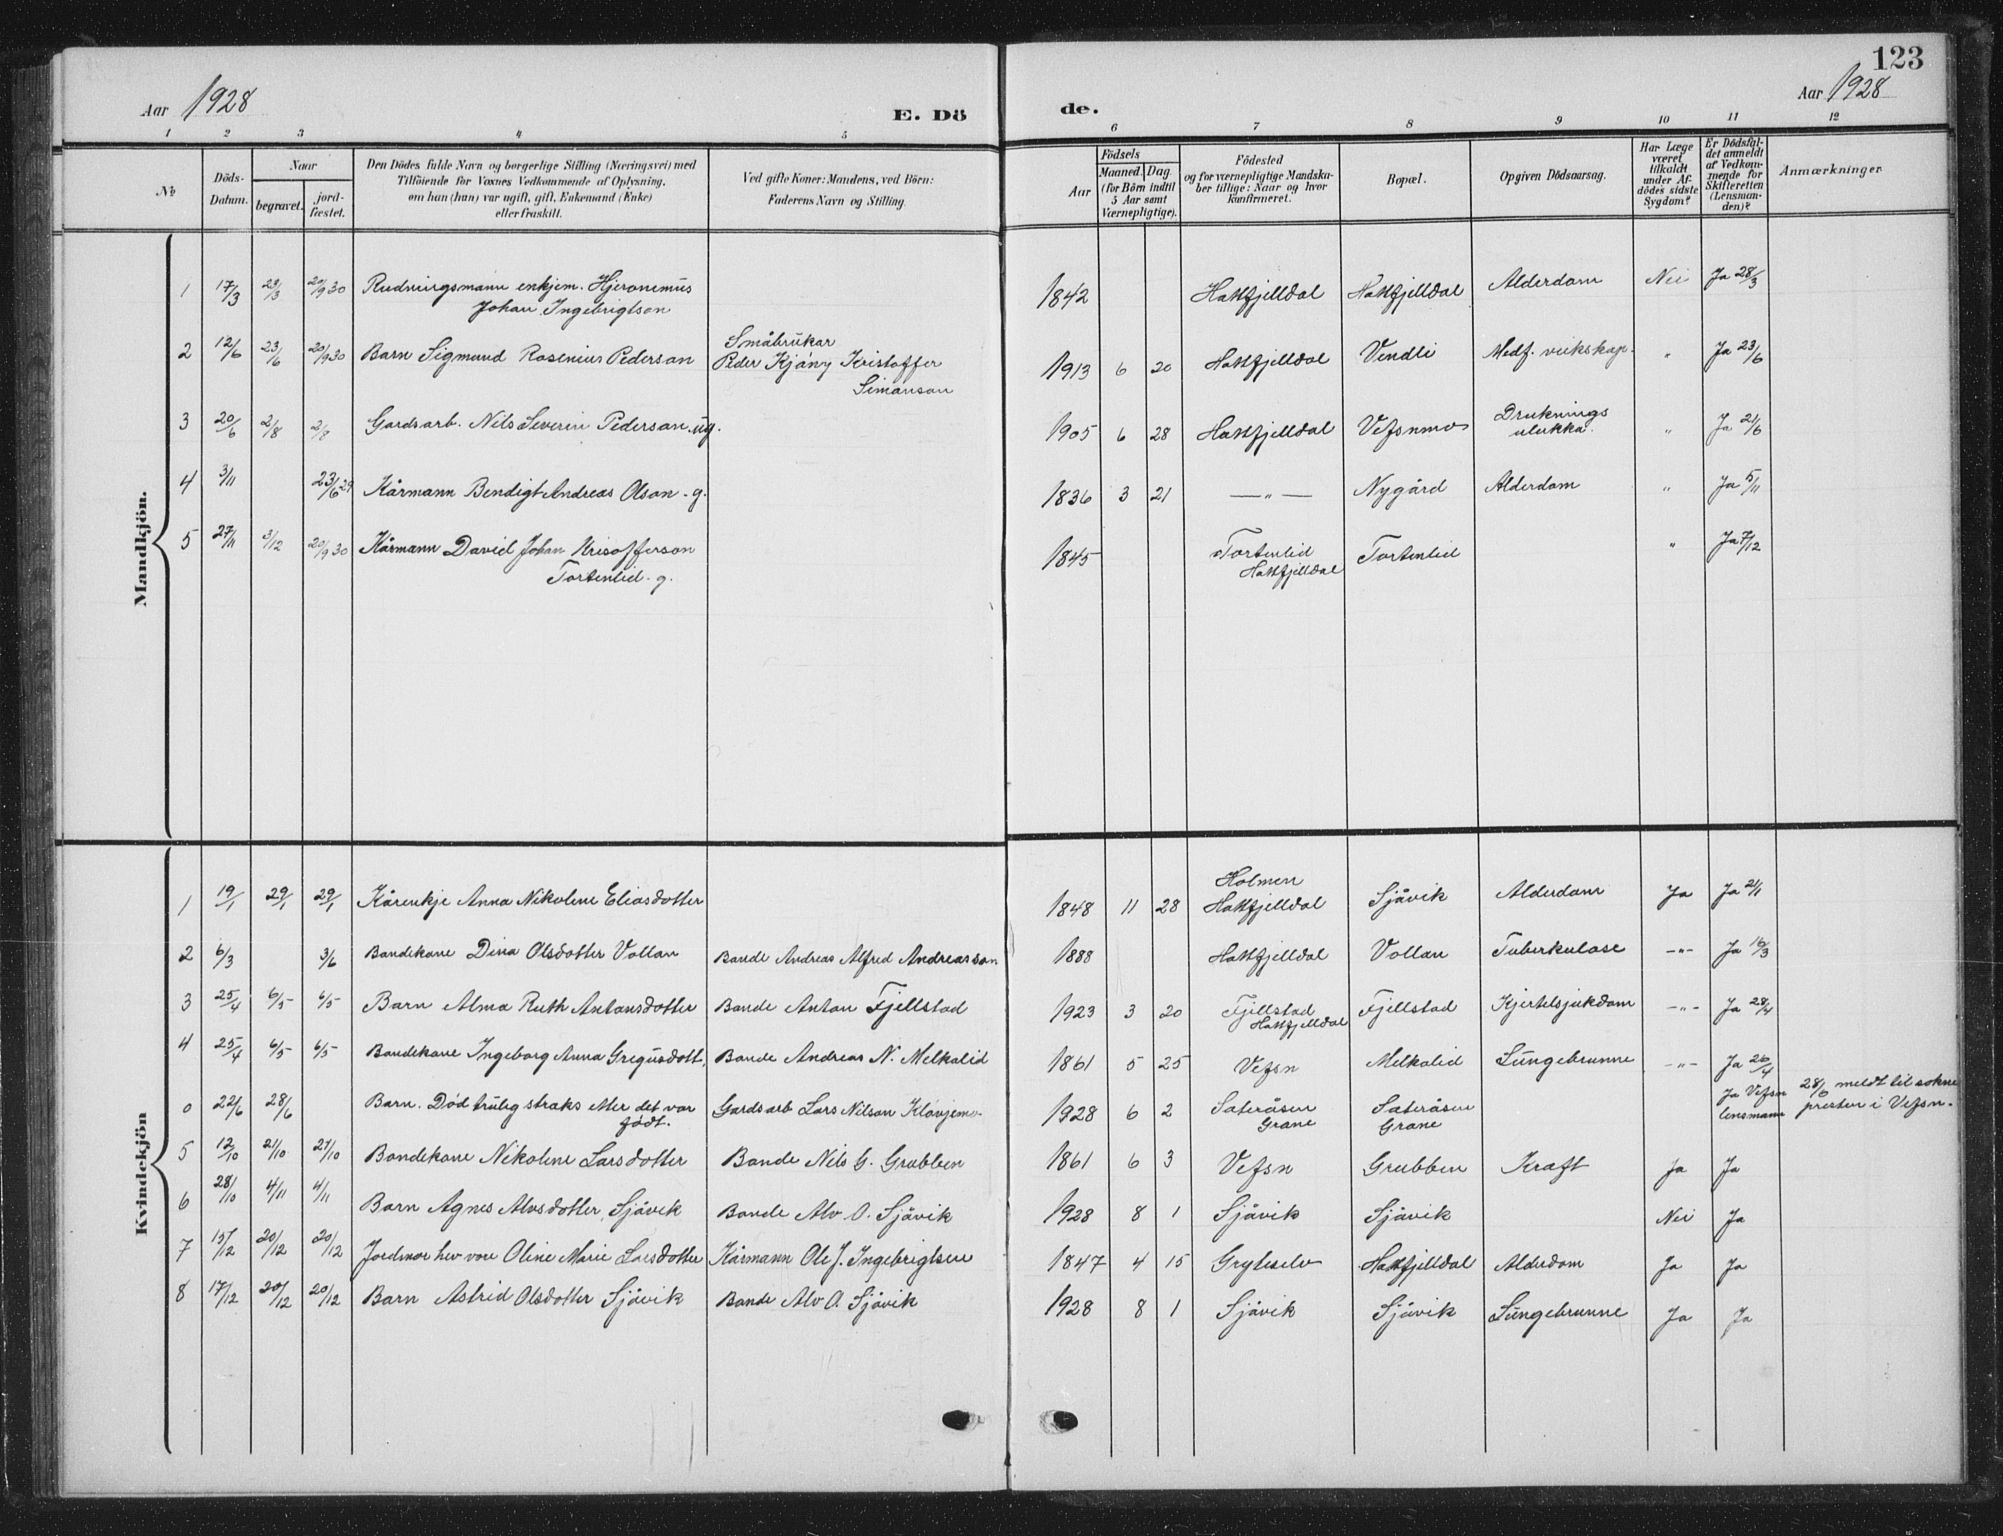 123
Aar 1928
E. Dö
de.
Aar 1928
1 2 3 4 5 6 7 8 9 10 11 12
No
Döds-
Datum.
Naar
begravet.
jord-
fæstet.
Den Dödes fulde Navn og borgerlige Stilling (Næringsvei) med
Tilföiende for Voxnes Vedkommende af Oplysning,
om han (hun) var ugift, gift, Enkemand (Enke)
eller fraskilt.
Ved gifte Koner: Mandens, ved Börn:
Faderens Navn og Stilling.
Aar
Födsels
Maaned. Dag.
(for Börn indtil
5 Aar samt
Værnepligtige).
Födested
og for værnepligtige Mandska-
ber tillige: Naar og hvor
konfirmeret.
Bopæl.
Opgiven Dödsaarsag.
Har Læge
været
tilkaldt
under Af-
dödes sidste
Sygdom?
Er Dödsfal-
det anmeldt
af Vedkom-
mende for
Skifteretten
(Lensman-
den)?
Anmærkninger
Mandkjön.
1 17/3 23/3 20/9 30 Rudningsmann enkjem. Hjeronimus 1842 Hattfjelldal Hattfjelldal Alderdom Nei Ja 28/3
Johan Ingebrigtson
Småbrukar
2 12/6 23/6 20/9 30 Barn Sigmund Rosenius Pederson Peder Kjány Kristoffer 1913 6 20 Hattfjelldal Vendli Medf. veikskap. " Ja 23/6
Simonson
3 20/6 2/8 2/8 Gardsarb. Nils Severin Pederson ug. 1905 6 28 Hattfjelldal Vefsnmo Druknings " Ja 21/6
ulukka.
4 3/11 23/6 29 Kårmann Bendigt Andreas Olson - g. 1836 3 21 — " — Nygård Alderdom " Ja 5/11
5 27/11 3/12 20/9 30 Kårmann David Johan Krisofferson 1845 Tortenlid Tortenlid " Ja 7/12
Tortenlid - g. Hattfjelldal
Kvindekjön
Holmen
1 19/1 29/1 29/1 Kårenkje Anna Nikoline Eliasdotter 1848 11 28 Hattfjelldal Sjåvik Alderdom Ja Ja 21/1
2 6/3 3/6 Bondekone Dina Olsdotter Vollan Bonde Andreas Alfred Andreasson 1888 Hattfjelldal Vollan Tuberkulose -"- Ja 16/3
3 25/4 6/5 6/5 Barn Alma Ruth Antonsdotter Bonde Anton Fjellstad 1923 3 20 Fjellstad Fjellstad Kjertelsjukdom -"- Ja 28/4
Hattfjelldal
4 25/4 6/5 6/5 Bondekone Ingeborg Anna Gregusdott. Bonde Andreas N. Melkalid 1861 5 25 Vefsn Melkalid Lungebrunne -"- Ja 26/4
0 22/6 28/6 Barn. Död truleg straks etter det var Gardsarb Lars Nilson Klövjemo 1928 6 2 Sateråsen Sateråsen Ja Vefsn 28/6 meldt til sokne
født. Grane Grane lensmann presten i Vefsn.
5 12/10 21/10 21/10 Bondekone Nikoline Larsdotter Bonde Nils G. Grubben 1861 6 3 Vefsn Grubben Kraft Ja Ja
6 28/10 4/11 4/11 Barn Agnes Alvsdotter Sjåvik Bonde Alv O. Sjåvik 1928 8 1 Sjåvik Sjåvik Nei Ja
7 15/12 20/12 20/12 Jordmor hev vore Oline Marie Larsdotter Kårmann Ole J. Ingebrigtsen 1847 4 15 Gryteselv Hattfjelldal Alderdom Ja Ja
8 17/12 20/12 20/12 Barn Astrid Olsdotter Sjåvik Bonde Alv O. Sjåvik 1928 8 1 Sjåvik Sjåvik Lungebrunne Ja Ja